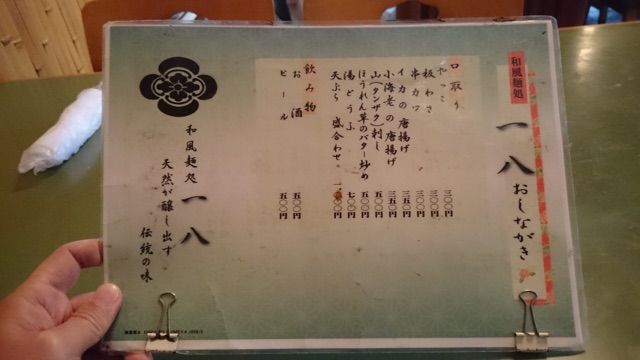 和風麺処
一八
おしながき
口取り
やっこ 三〇〇円
板わさ 三五〇円
串カツ 三〇〇円
イカの唐揚げ 三五〇円
小海老の唐揚げ 三五〇円
山(タンザク)刺し 五〇〇円
ほうれん草のバター炒め 五〇〇円
湯どうふ 七〇〇円
天ぷら 盛合わせ
飲み物
お酒 五〇〇円
ビール 五〇〇円
和風麺処 一八
天然が醸し出す
伝統の味